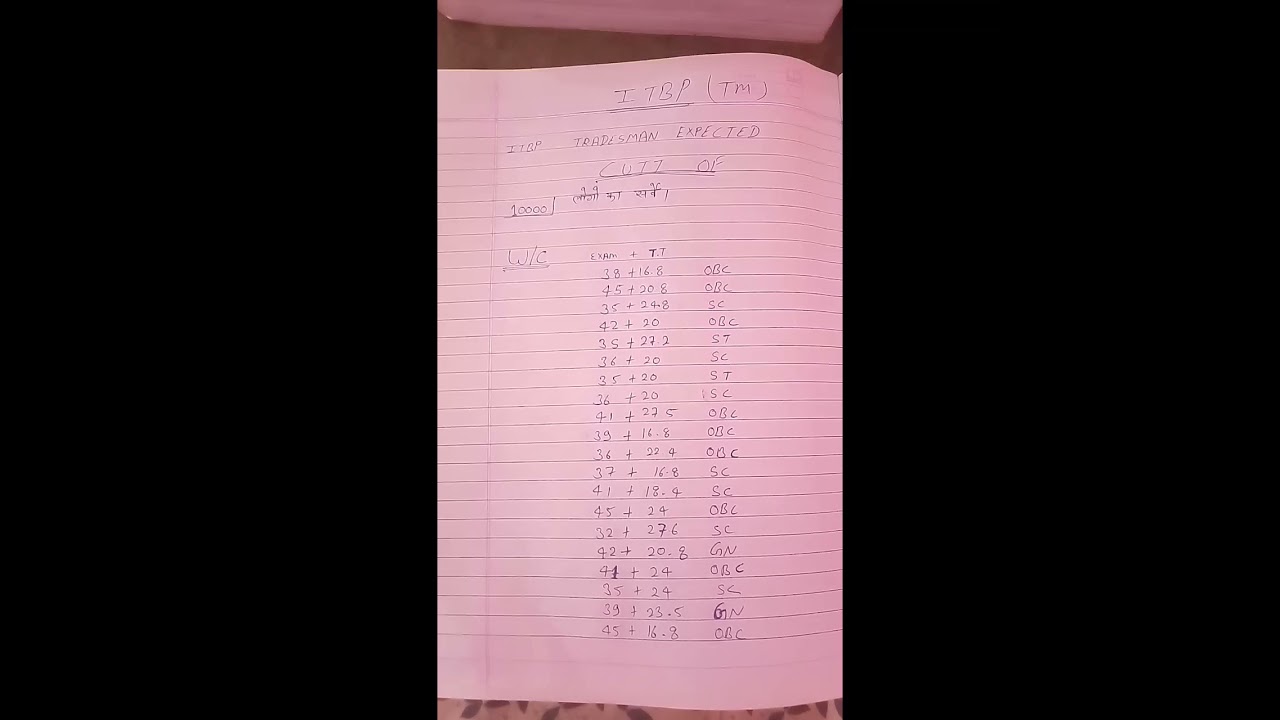 ITBP (TM)
ITBP TRADESMAN EXPECTED
CUTT OF
10000/ लोगो का सर्वे।
W/C EXAM + T.T
38 + 16.8 OBC
45 + 20.8 OBC
35 + 24.8 SC
42 + 20 OBC
35 + 27.2 ST
36 + 20 SC
35 + 20 ST
36 + 20 SC
41 + 27.5 OBC
39 + 16.8 OBC
36 + 22.4 OBC
37 + 16.8 SC
41 + 18.4 SC
45 + 24 OBC
32 + 27.6 SC
42 + 20.8 GN
41 + 24 OBC
35 + 24 SC
39 + 23.5 GN
45 + 16.8 OBC